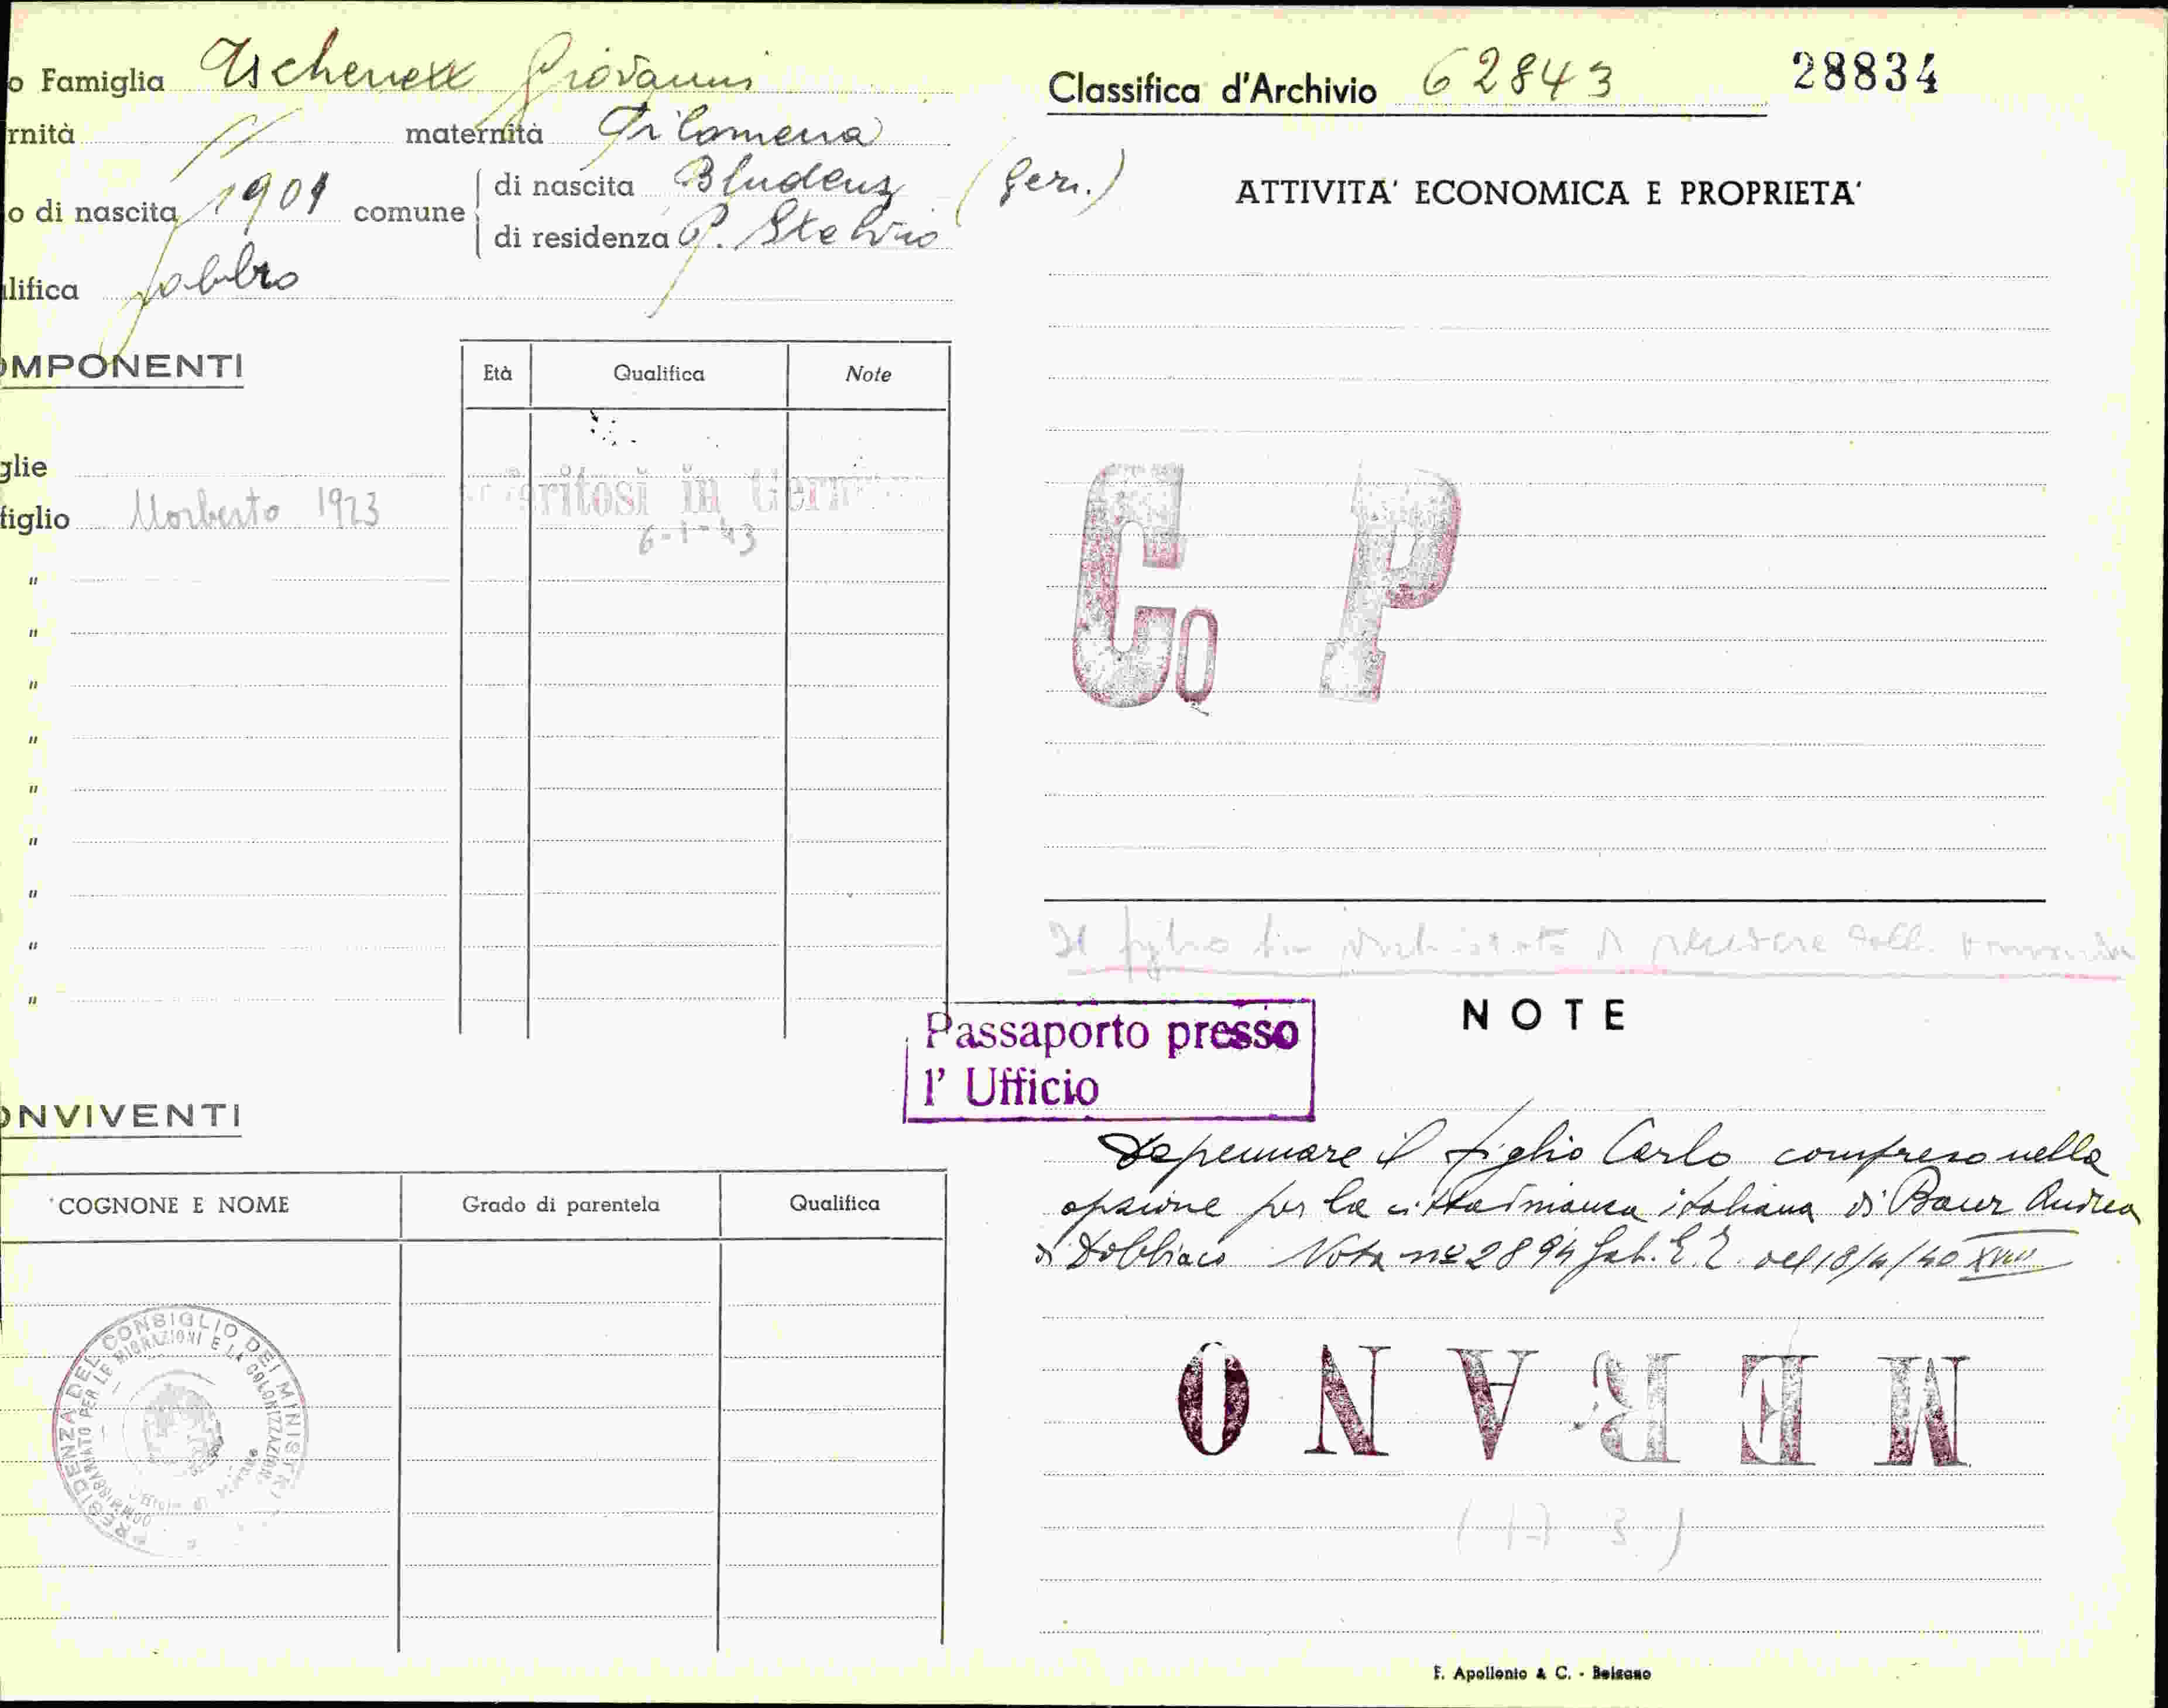 o Famiglia Tschenett Giovanni
rnità // maternità Filomena
o di nascita 1901 comune di nascita Bludenz (Ger.)
di residenza P. Stelvio
lifica fabbro
OMPONENTI
Età Qualifica Note
glie
figlio Norberto 1923
Trasferitosi in Germania
6-1-43
"
"
"
"
"
"
"
"
"
ONVIVENTI
COGNONE E NOME Grado di parentela Qualifica
PRESIDENZA DEL CONSIGLIO DEI MINISTRI
COMMISSARIATO PER LE MIGRAZIONI E LA COLONIZZAZIONE
Classifica d'Archivio 62843 28834
ATTIVITA' ECONOMICA E PROPRIETA'
Co P
Il figlio
NOTE
Passaporto presso
l' Ufficio
Depennare il figlio Carlo compreso nella
opzione per la cittadinanza italiana di Baur Andrea
di Dobbiaco Nota nº 2894 Gab. E.E. del 18/4/40 XVIII
MERANO
F. Apollonio & C. - Bolzano